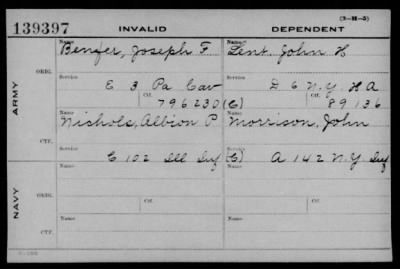 (3-H-5)
139397 INVALID DEPENDENT
Name Name
Benfer, Joseph F Lent, John H
ORIG.
Service Service
E 3 Pa Cav D 6 N.Y. H A
Ctf. Ctf.
796230 (C) 89136
ARMY
Name Name
Nichols, Albion P Morrison, John
CTF.
Service Service
C 102 Ill Inf (C) A 142 N.Y Inf
Name Name
ORIG.
Service Service
Ctf. Ctf.
NAVY
Name Name
CTF.
Service Service